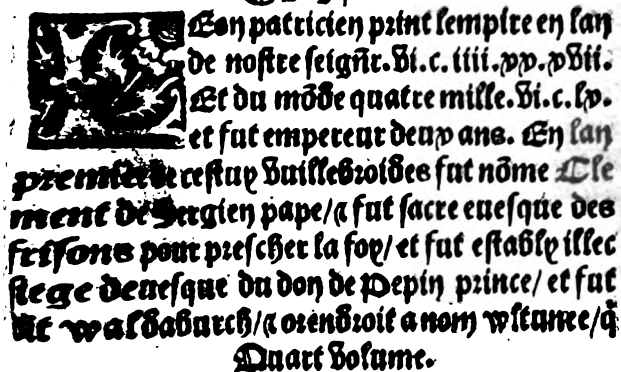 LEon patricien print lempire en lan
de nostre seigñr. vi. c. iiii. xx. xvii.
Et du mōde quatre mille. vi. c. lx.
et fut empereur deux ans. En lan
premier de cestuy vuillebroides fut nōme Cle
ment de Sergien pape/ ⁊ fut sacre euesque des
frisons pour prescher la foy/ et fut estably illec
siege deuesque du don de Pepin prince/ et fut
dit waldaburch/ ⁊ orendroit a nom wstunce/ q̄
Quart volume.